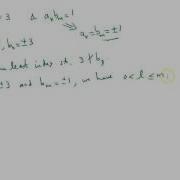 = 3 & aₙbₘ=1
⇒ aₙ=bₘ=±1
, b₀ = ±3
least index s.t. 3∤b
±3 and bₘ=±1, we have 0<l≤m